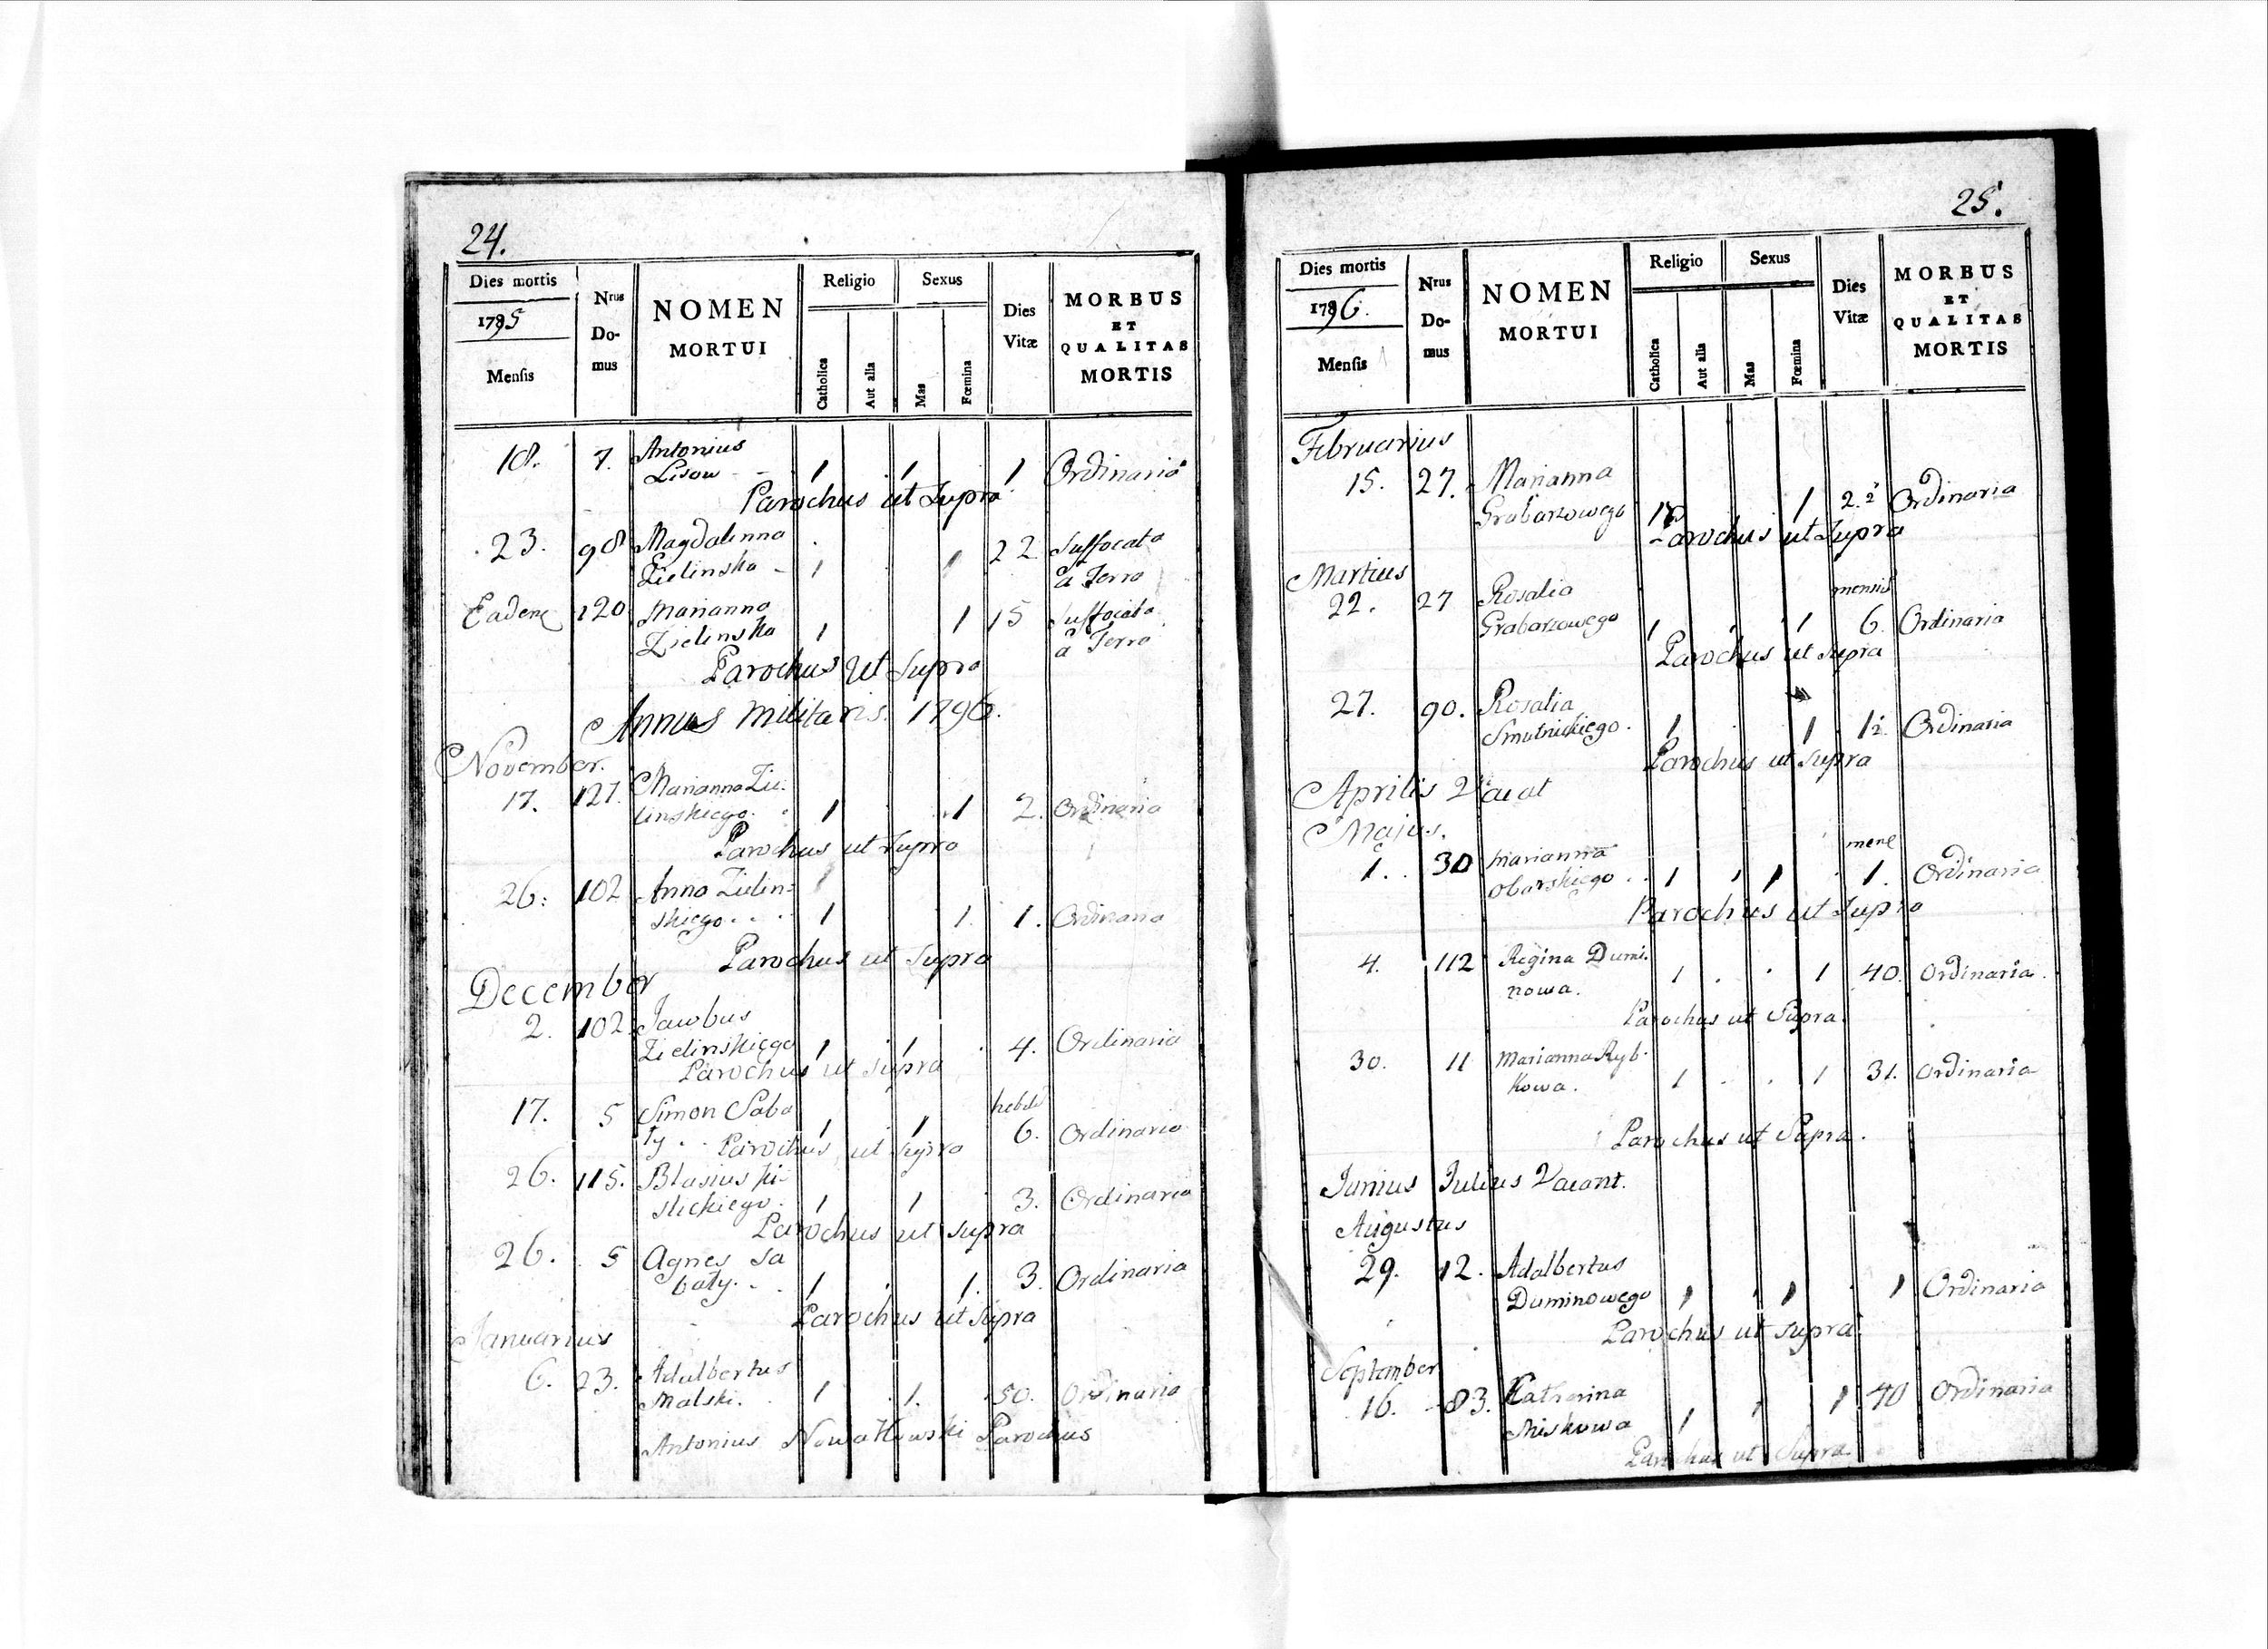 24.
Dies mortis
1795
Mensis
Nrus Do-
mus
NOMEN
MORTUI
Religio
Catholica
Aut alia
Sexus
Mas
Fœmina
Dies
Vitæ
MORBUS
ET
QUALITAS
MORTIS
18. 7. Antonius
Lisow - - 1 . 1 1 Ordinaria
Parochus ut Supra
23. 98 Magdalenna
Zielinska - 1 1 22 Suffocata
a Terra
Eadem 120 Marianna
Zielinska 1 1 15 Suffocata
a Terra
Parochus ut Supra
Annus Militaris. 1796.
November.
17. 127. Marianna Zie-
linskiego. 1 1 2. Ordinaria
Parochus ut Supra
26. 102 Anna Zielin-
skiego. . . 1 1. 1. Ordinaria
Parochus ut Supra
December
2. 102. Jacobus
Zielinskiego 1 . 1 . 4. Ordinaria
Parochus ut Supra
17. 5 Simon Saba
ty . . 1 1 hebd 6. Ordinaria
Parochus ut Supra
26. 115. Blasius
1 1 3. Ordinaria
Parochus ut Supra
26. 5 Agnes Sa
baty. . . 1 . 1. 3. Ordinaria
Parochus ut Supra
Januarius
6. 23. Adalbertus
Malski. 1 . 1. 50. Ordinaria
Antonius Nowakowski Parochus
25.
Dies mortis
1796.
Mensis
Nrus
Do-
mus
NOMEN
MORTUI
Religio
Catholica
Aut alia
Sexus
Mas
Fœmina
Dies
Vitæ
MORBUS
ET
QUALITAS
MORTIS
Februarius
15. 27. Marianna
Grabarzowego 1 1 2.½ Ordinaria
Parochus ut Supra
Martius
22. 27 Rosalia mensis
Grabarzowego 1 . 1 6. Ordinaria
Parochus ut Supra
27. 90. Rosalia
Smutnickiego. 1 . 1 1½. Ordinaria
Parochus ut Supra
Aprilis Vacat
Majus.
1. 30 Marianna
Obarskiego . . 1 1 1. Ordinaria
Parochus ut Supra
4. 112 Regina Dumi-
nowa. 1 . . 1 40. Ordinaria.
Parochus ut Supra.
30. 11 Marianna Ryb-
kowa. 1 . . 1 31. Ordinaria
Parochus ut Supra.
Junius Julius Vacant.
Augustus
29. 12. Adalbertus
Duminowego 1 1 . 1 Ordinaria
Parochus ut Supra
September
16. 83. Katharina
Miskowa 1 1 40 Ordinaria
Parochus ut Supra